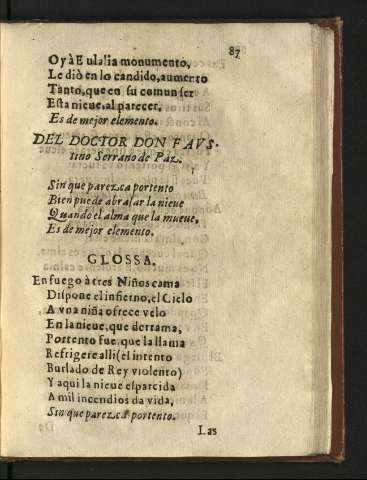 87
Oy à Eulalia monumento,
Le diò en lo candido, aumento
Tanto, que en su comun ser
Esta nieue, al parecer,
Es de mejor elemento.
DEL DOCTOR DON FAVS-
tino Serrano de Paz.
Sin que parezca portento
Bien puede abrasar la nieue
Quando el alma que la mueue,
Es de mejor elemento.
GLOSSA.
En fuego à tres Niños cama
Dispone el infierno, el Cielo
A vna niña ofrece velo
En la nieue, que derrama,
Portento fue, que la llama
Refrigere alli (el intento
Burlado de Rey violento)
Y aqui la nieue esparcida
A mil incendios da vida,
Sin que parezca portento.
Las